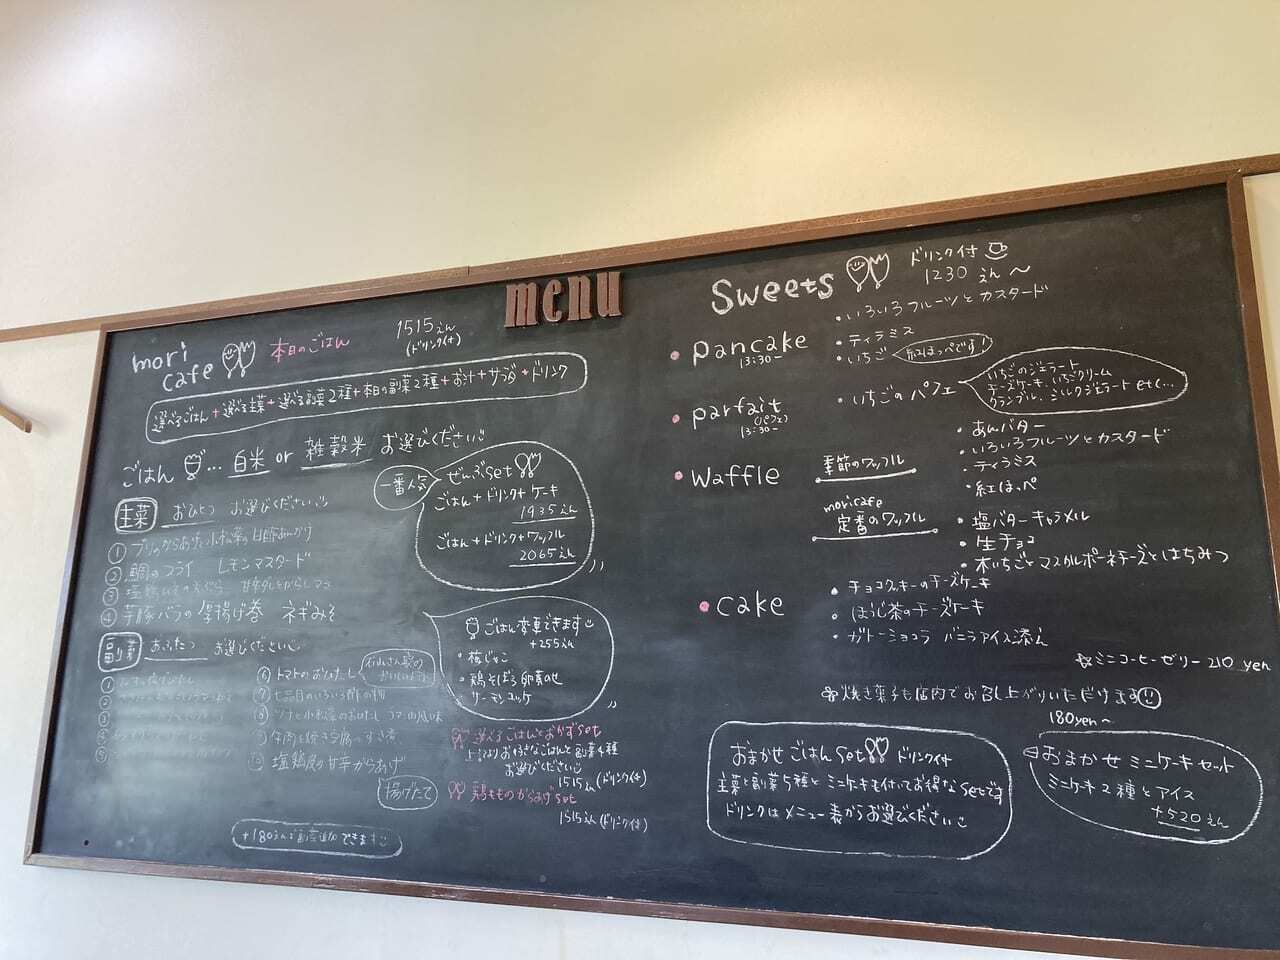 menu
mori cafe
本日のごはん
1515えん
(ドリンク付)
選べるごはん+選べる主菜+選べる副菜2種+本日の副菜2種+お汁+サラダ+ドリンク
ごはん … 白米 or 雑穀米 お選びください
主菜 おひとつ お選びください
① ブリのからあげと小松菜の
② 鯛のフライ レモンマスタード
③
④ 芋豚バラの厚揚げ巻 ネギみそ
副菜 おふたつ お選びください
①
②
③
④
⑤
⑥ トマトのおひたし
⑦ 七品目のいろいろ酢の物
⑧ ツナと小松菜のおひたし ゴマの風味
⑨ 牛肉と焼き豆腐のすき煮
⑩ 塩鶏皮の甘辛からあげ
揚げたて
+180えんで副菜追加できます
一番人気
ぜんぶset
ごはん+ドリンク+ケーキ
1935えん
ごはん+ドリンク+ワッフル
2065えん
ごはん変更できます
+255えん
・梅じゃこ
・鶏そぼろ 卵黄のせ
・サーモンユッケ
選べるごはんとおかずset
上記よりお好きなごはんと副菜4種
お選びください
1515えん(ドリンク付)
鶏もものからあげset
1515えん(ドリンク付)
Sweets
ドリンク付
1230えん〜
・pancake
13:30-
・いろいろフルーツとカスタード
・ティラミス
・いちご
紅ほっぺです!
・parfait
(パフェ)
13:30-
・いちごのパフェ
いちごのジェラート
チーズケーキ、いちごクリーム
クランブル、ミルクジェラート etc...
・waffle
季節のワッフル
・あんバター
・いろいろフルーツとカスタード
・ティラミス
・紅ほっぺ
moricafe
定番のワッフル
・塩バターキャラメル
・生チョコ
・木いちごとマスカルポーネチーズとはちみつ
・cake
・チョコクッキーのチーズケーキ
・ほうじ茶のチーズケーキ
・ガトーショコラ バニラアイス添え
☆ミニコーヒーゼリー 210 yen
焼き菓子も店内でお召し上がりいただけます
180yen〜
おまかせごはんset ドリンク付
主菜と副菜5種とミニケーキも付いてお得なsetです
ドリンクはメニュー表からお選びください
おまかせミニケーキセット
ミニケーキ2種とアイス
+520えん